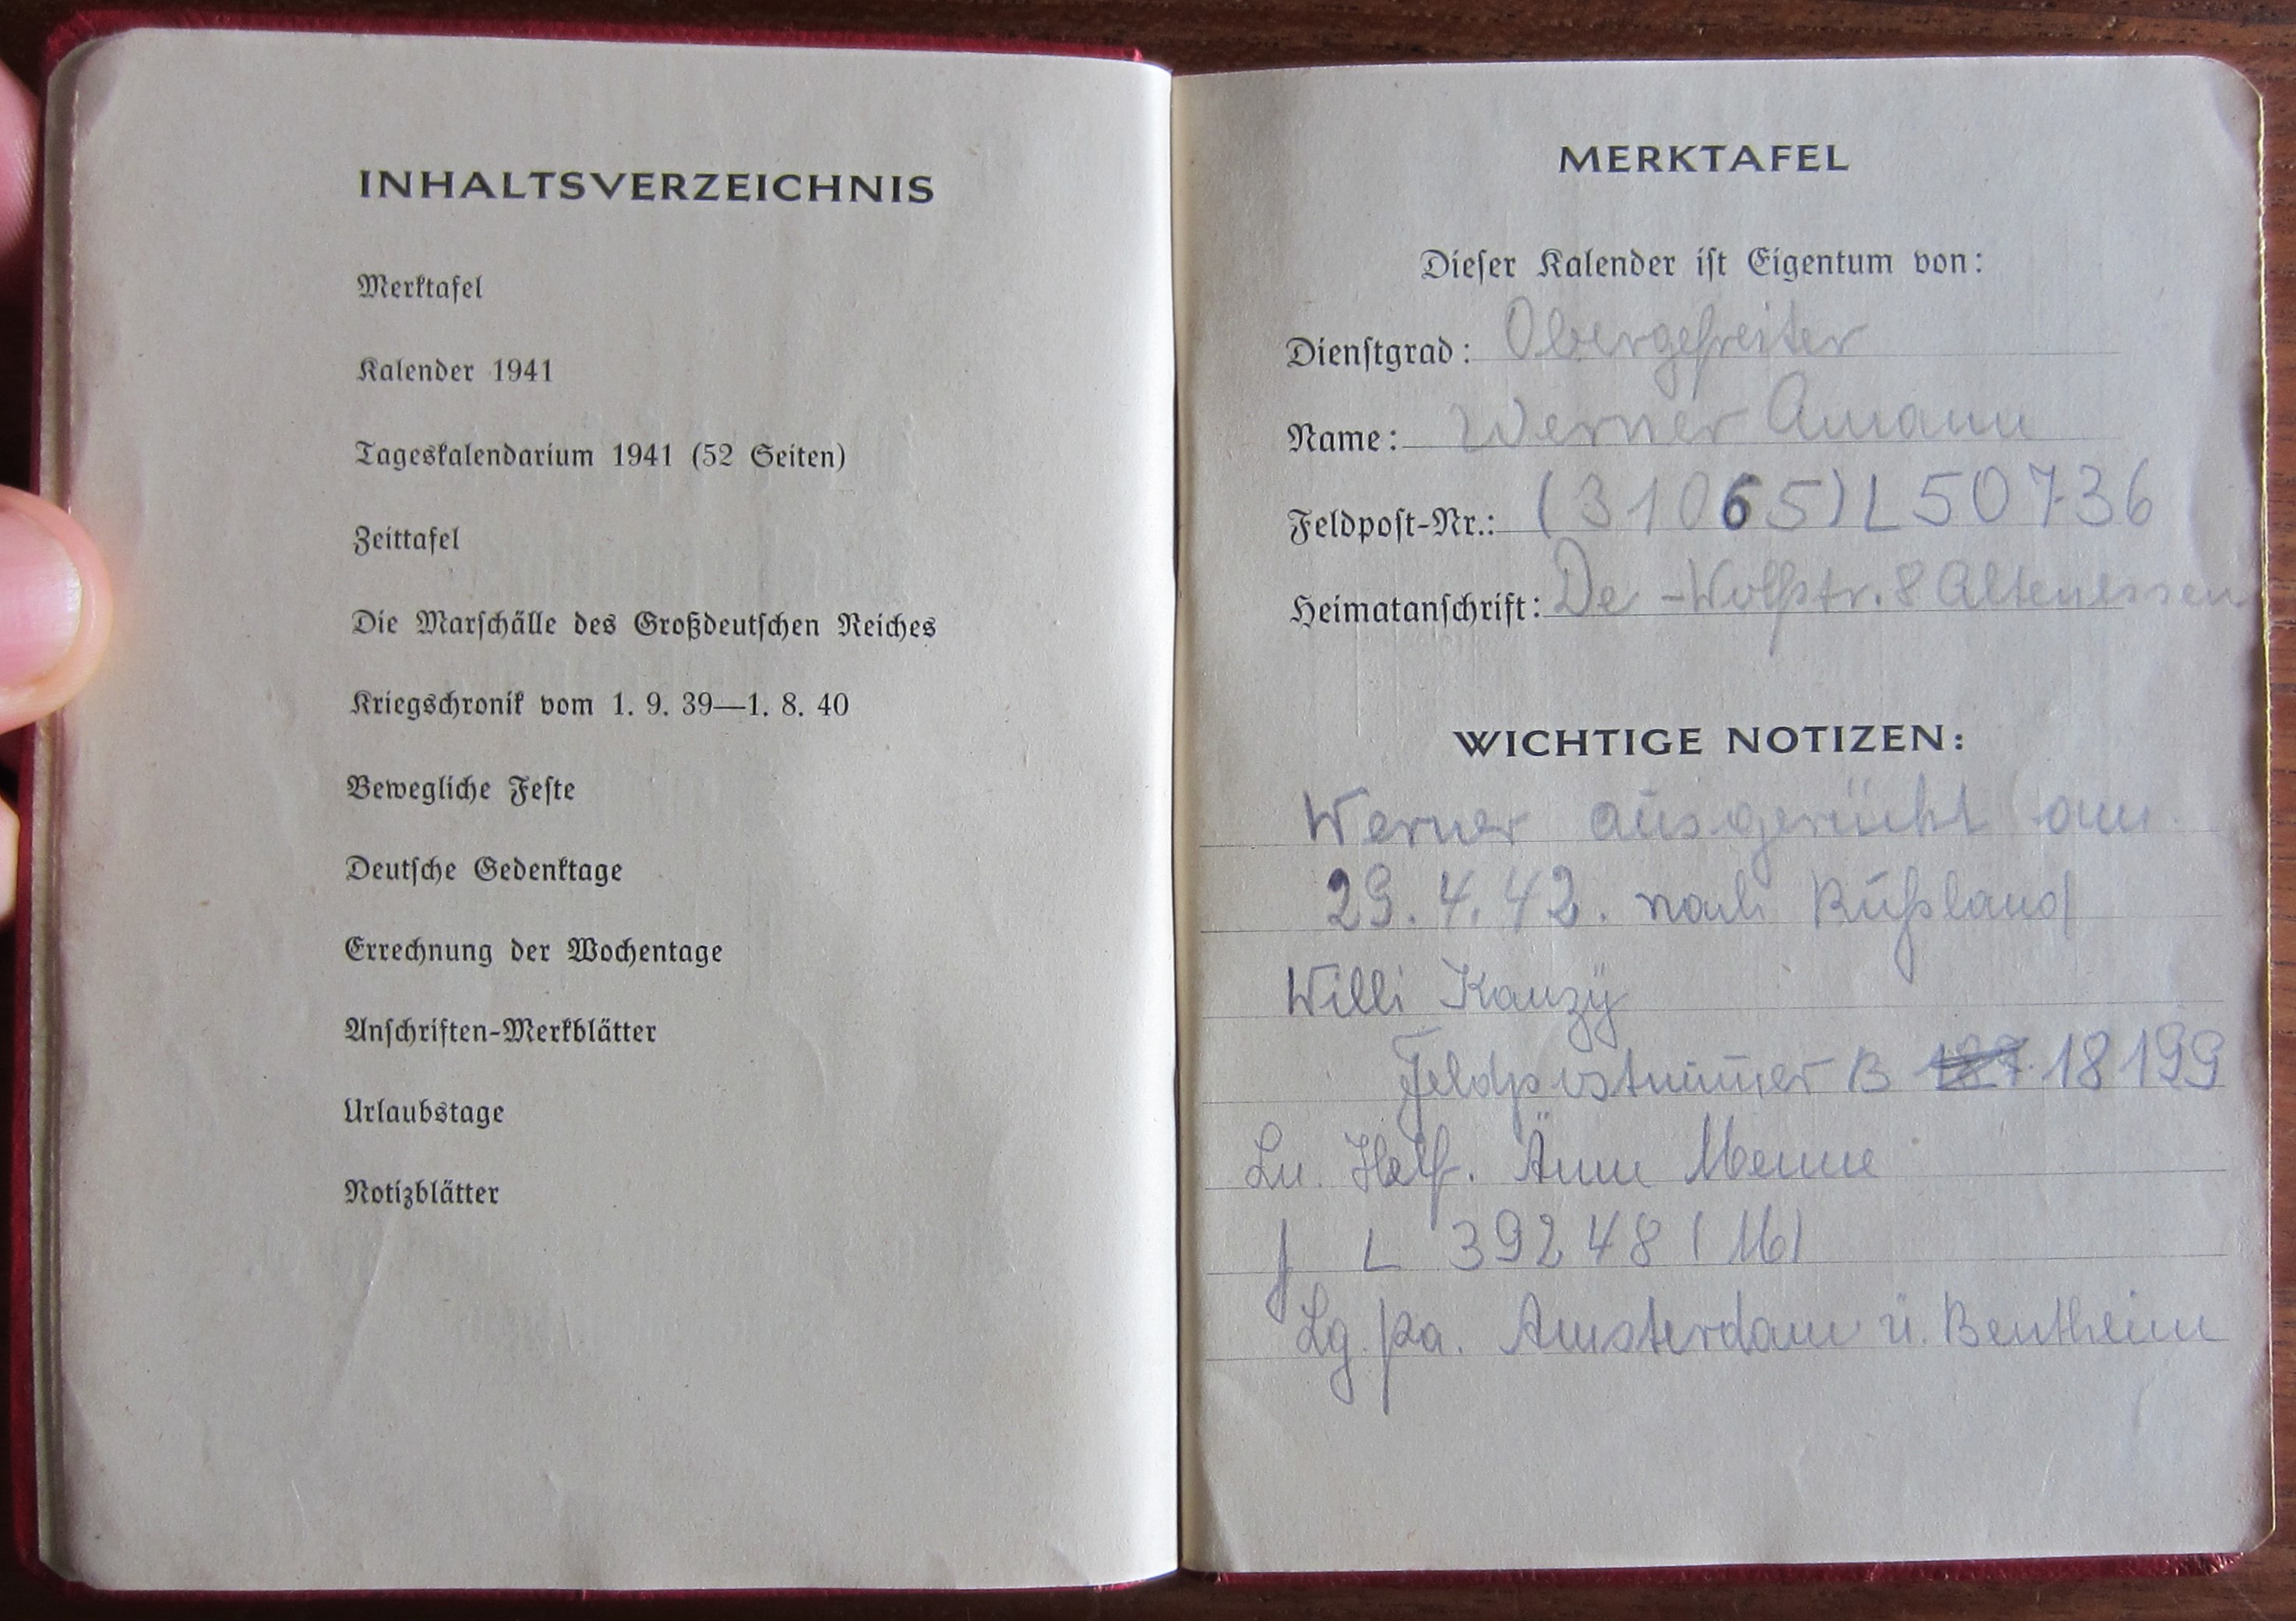 INHALTSVERZEICHNIS
Merktafel
Kalender 1941
Tageskalendarium 1941 (52 Seiten)
Zeittafel
Die Marschälle des Großdeutschen Reiches
Kriegschronik vom 1. 9. 39—1. 8. 40
Bewegliche Feste
Deutsche Gedenktage
Errechnung der Wochentage
Anschriften-Merkblätter
Urlaubstage
Notizblätter
MERKTAFEL
Dieser Kalender ist Eigentum von:
Dienstgrad: Obergefreiter
Name: Werner Amann
Feldpost-Nr.: (31065) L 50736
Heimatanschrift: De-Wolffstr. 8 Altenessen
WICHTIGE NOTIZEN:
Werner ausgerückt am
29. 4. 42. nach Rußland
Willi
Feldpostnummer B 18199
Ln. Helf. Änne Menne
L 39248
Lg. pa. Amsterdam ü. Bentheim